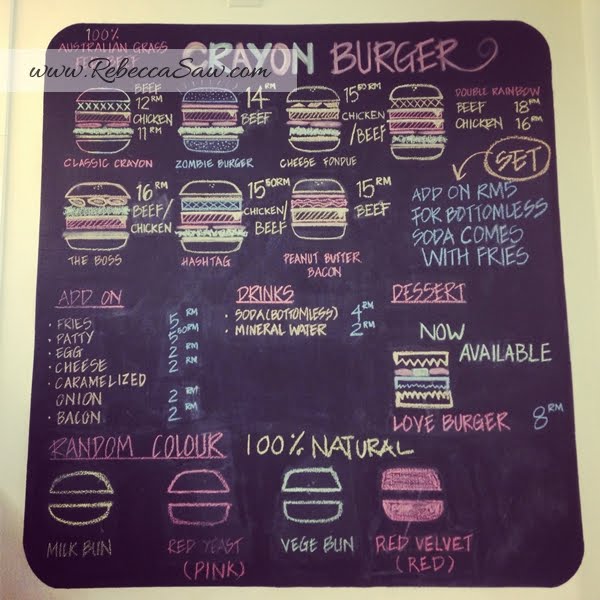 100%
AUSTRALIAN GRASS
www.RebeccaSaw.com
CRAYON BURGER
BEEF 12RM
CHICKEN 11RM
CLASSIC CRAYON
14RM
BEEF
ZOMBIE BURGER
1550RM
CHICKEN
/BEEF
CHEESE FONDUE
DOUBLE RAINBOW
BEEF 18RM
CHICKEN 16RM
SET
ADD ON RM5
FOR BOTTOMLESS
SODA COMES
WITH FRIES
16RM
BEEF/
CHICKEN
THE BOSS
1550RM
CHICKEN/
BEEF
HASHTAG
15RM
BEEF
PEANUT BUTTER
BACON
ADD ON
· FRIES 5RM
· PATTY 550RM
· EGG 2RM
· CHEESE 2RM
· CARAMELIZED
ONION 2RM
· BACON 2RM
DRINKS
· SODA (BOTTOMLESS) 4RM
· MINERAL WATER 2RM
DESSERT
NOW
AVAILABLE
LOVE BURGER 8RM
RANDOM COLOUR 100% NATURAL
MILK BUN
RED YEAST
(PINK)
VEGE BUN
RED VELVET
(RED)